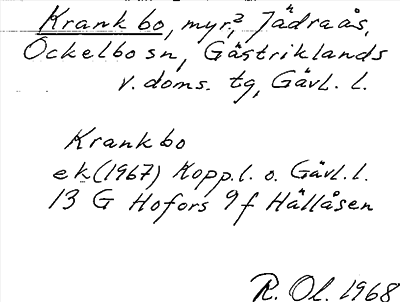 Krankbo, myr,? Jädraås,
Ockelbo sn, Gästriklands
v. doms. tg, Gävl. l.
Krankbo
ek (1967) Kopp. l. o. Gävl. l.
13 G Hofors 9 f Hällåsen
R. Ol. 1968